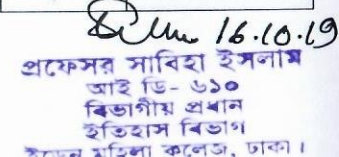 16.10.19
প্রফেসর সাবিহা ইসলাম
আই ডি- ৬১০
বিভাগীয় প্রধান
ইতিহাস বিভাগ
মহিলা কলেজ, ঢাকা।